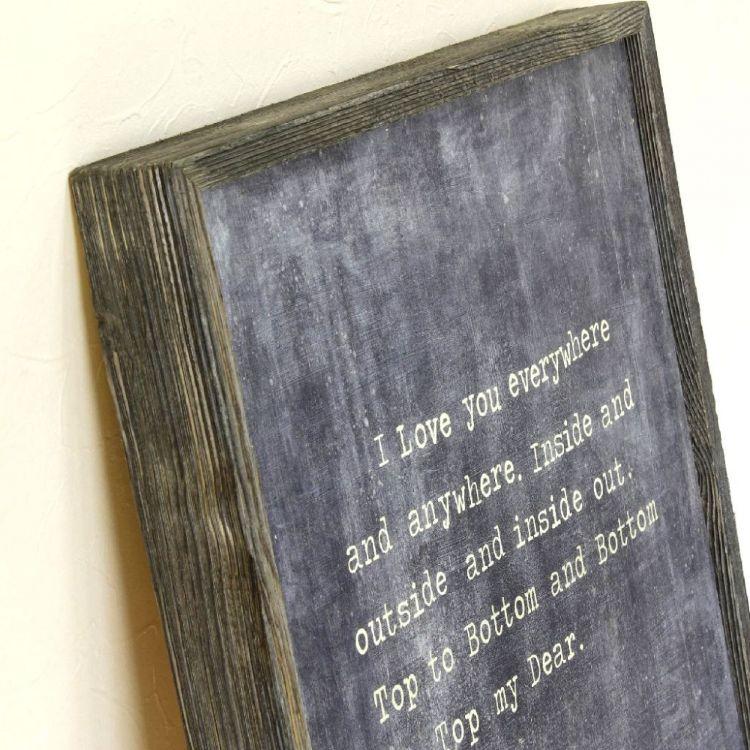 I Love you everywhere
and anywhere. Inside and
outside and inside out.
Top to Bottom and Bottom
Top my Dear.